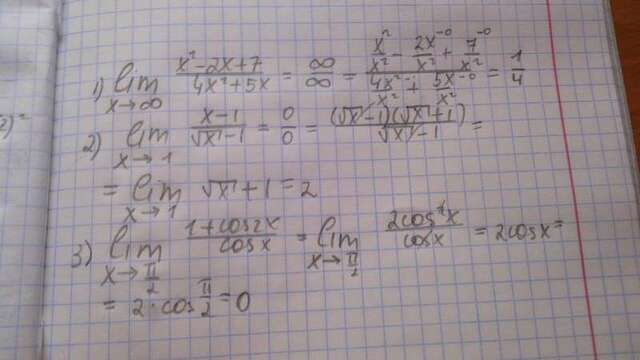 1) lim x→∞ (x²-2x+7)/(4x²+5x) = ∞/∞ = (x²/x² - 2x/x² →0 + 7/x² →0)/(4x²/x² + 5x/x² →0) = 1/4
2) lim x→1 (x-1)/(√x-1) = 0/0 = (√x-1)(√x+1)/(√x-1) =
= lim x→1 √x+1 = 2
3) lim x→π/2 (1+cos2x)/cosx = lim x→π/2 2cos²x/cosx = 2cosx =
= 2·cos π/2 = 0